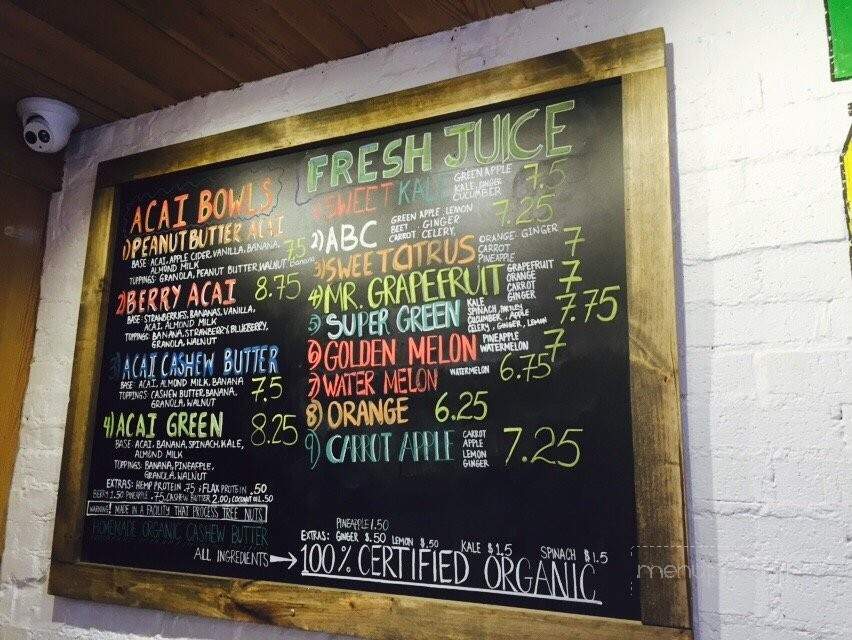 ACAI BOWLS
1) PEANUT BUTTER ACAI
BASE: ACAI, APPLE CIDER, VANILLA, BANANA, 7.5
ALMOND MILK
TOPPINGS: GRANOLA, PEANUT BUTTER, WALNUT Banana
2) BERRY ACAI 8.75
BASE: STRAWBERRIES, BANANAS, VANILLA,
ACAI, ALMOND MILK
TOPPINGS: BANANA, STRAWBERRY, BLUEBERRY,
GRANOLA, WALNUT
3) ACAI CASHEW BUTTER
BASE: ACAI, ALMOND MILK, BANANA 7.5
TOPPINGS: CASHEW BUTTER, BANANA,
GRANOLA, WALNUT
4) ACAI GREEN 8.25
BASE: ACAI, BANANA, SPINACH, KALE,
ALMOND MILK
TOPPINGS: BANANA, PINEAPPLE,
GRANOLA, WALNUT
EXTRAS: HEMP PROTEIN .75, FLAX PROTEIN .50
BERRY 1.50 PINEAPPLE .75, CASHEW BUTTER 2.00, COCONUT OIL .50
WARNING! MADE IN A FACILITY THAT PROCESS TREE NUTS
HOMEMADE ORGANIC CASHEW BUTTER
FRESH JUICE
1) SWEET KALE GREEN APPLE 7.5
KALE, GINGER
CUCUMBER
2) ABC GREEN APPLE, LEMON 7.25
BEET, GINGER
CARROT, CELERY,
3) SWEET CITRUS ORANGE, GINGER 7
CARROT
PINEAPPLE
4) MR. GRAPEFRUIT GRAPEFRUIT 7
ORANGE
CARROT
GINGER
5) SUPER GREEN KALE 7.75
SPINACH, PARSLEY
CUCUMBER, APPLE
CELERY, GINGER, LEMON
6) GOLDEN MELON PINEAPPLE 7
WATERMELON
7) WATER MELON WATERMELON 6.75
8) ORANGE 6.25
9) CARROT APPLE CARROT 7.25
APPLE
LEMON
GINGER
PINEAPPLE 1.50
EXTRAS: GINGER $.50 LEMON $.50 KALE $1.5 SPINACH $1.5
ALL INGREDIENTS → 100% CERTIFIED ORGANIC